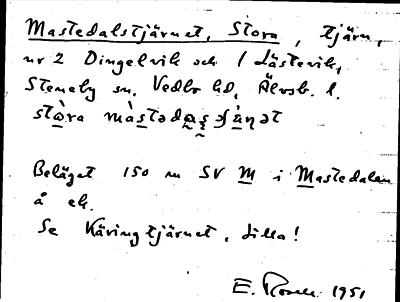 Mastedalstjärnet, Stora, tjärn,
nr 2 Dingelvik och 1 Lästevik,
Steneby sn. Vedbo hd, Älvsb. l.
stòra màstədas
Beläget 150 m SV M i Mastedalen
å ek.
Se Käringtjärnet, Lilla!
E. 1951